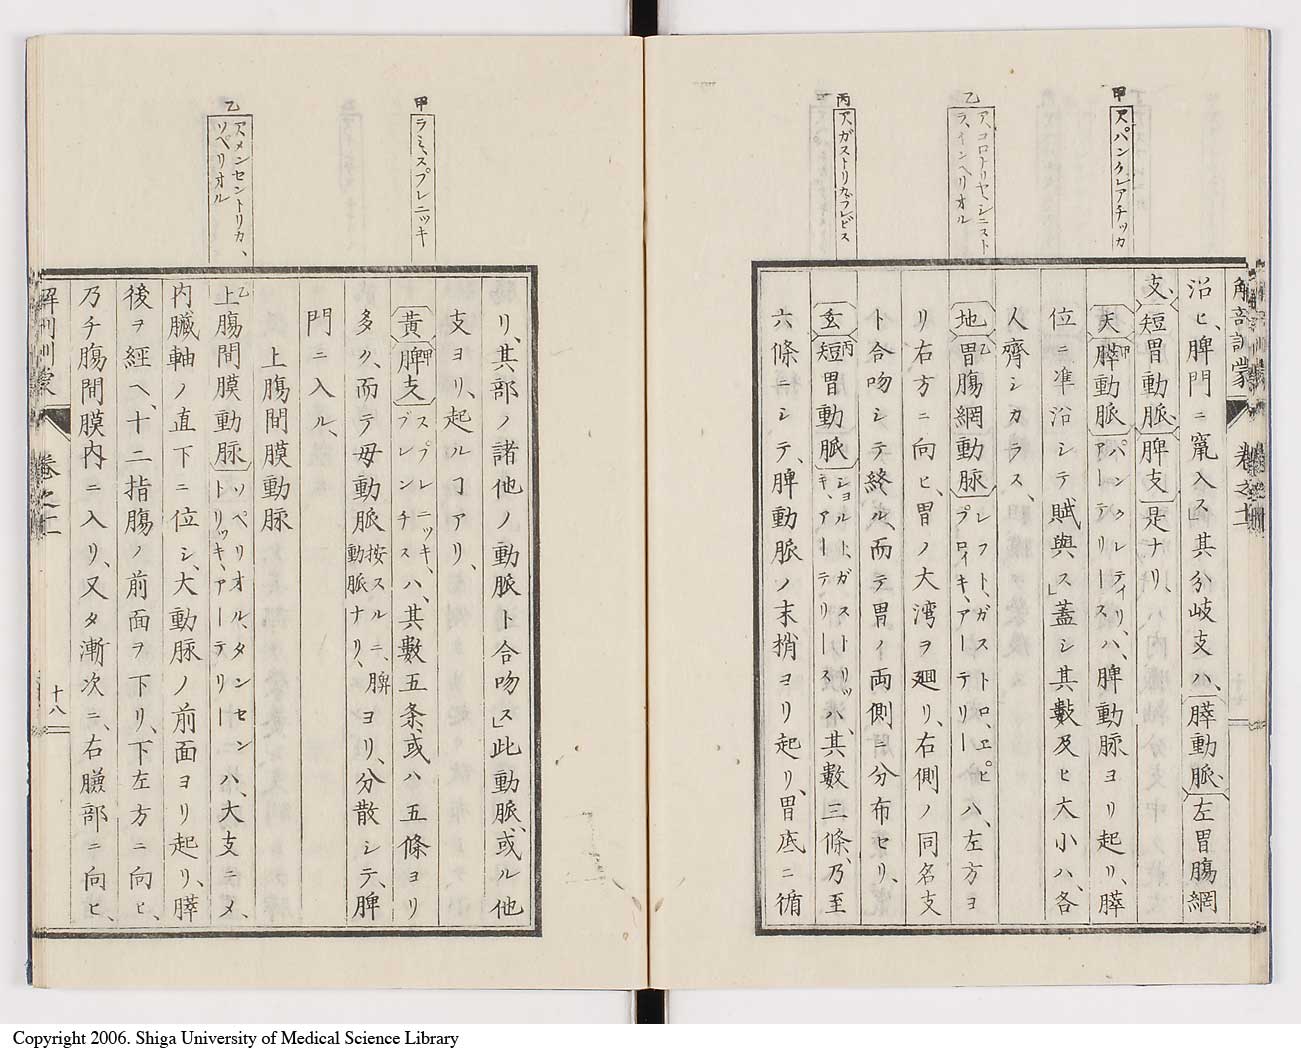 甲
ア、パンクレアチッカ
乙
ア、コロナリヤ、シニスト
ラ、インヘリオル
丙
ア、ガストリカ、ブレビス
沿ヒ、脾門ニ竄入ス」其分岐支ハ、膵動脈、左胃腸網
支、短胃動脈、脾支、是ナリ、
天膵動脈甲パンクレティリ、アーテリース、ハ、脾動脈ヨリ起リ、膵
位ニ準沿シテ賦與ス」蓋シ其數及ヒ大小ハ、各
人齊シカラス、
地胃腸網動脈乙レフト、ガストロ、エピプロイキ、アーテリー、ハ、左方ヨ
リ右方ニ向ヒ、胃ノ大湾ヲ廻リ、右側ノ同名支
ト合吻シテ終ル、而テ胃ノ両側ニ分布セリ、
玄短胃動脈丙ショルト、ガストリッキ、アーテリース、ハ、其數三條、乃至
六條ニシテ、脾動脈ノ末梢ヨリ起リ、胃底ニ循
解剖訓蒙
甲
ラミ、スプレニッキ
乙
ア、メンセントリカ、
ソペリオル
リ、其部ノ諸他ノ動脈ト合吻ス」此動脈、或ル他
支ヨリ、起ルヿアリ、
黄脾支甲スプレニッキ、ブレンチス、ハ、其數五条、或ハ五條ヨリ
多ク、而テ母動脈按スルニ、脾動脈ナリ、ヨリ、分散シテ、脾
門ニ入ル、
上腸間膜動脈
上腸間膜動脈乙ソペリオル、メンセントリッキ、アーテリー、ハ、大支ニメ、
内臓軸ノ直下ニ位シ、大動脈ノ前面ヨリ起リ、膵
後ヲ經ヘ、十二指腸ノ前面ヲ下リ、下左方ニ向ヒ、
乃チ腸間膜内ニ入リ、又タ漸次ニ、右臁部ニ向ヒ、
十八
Copyright 2006. Shiga University of Medical Science Library